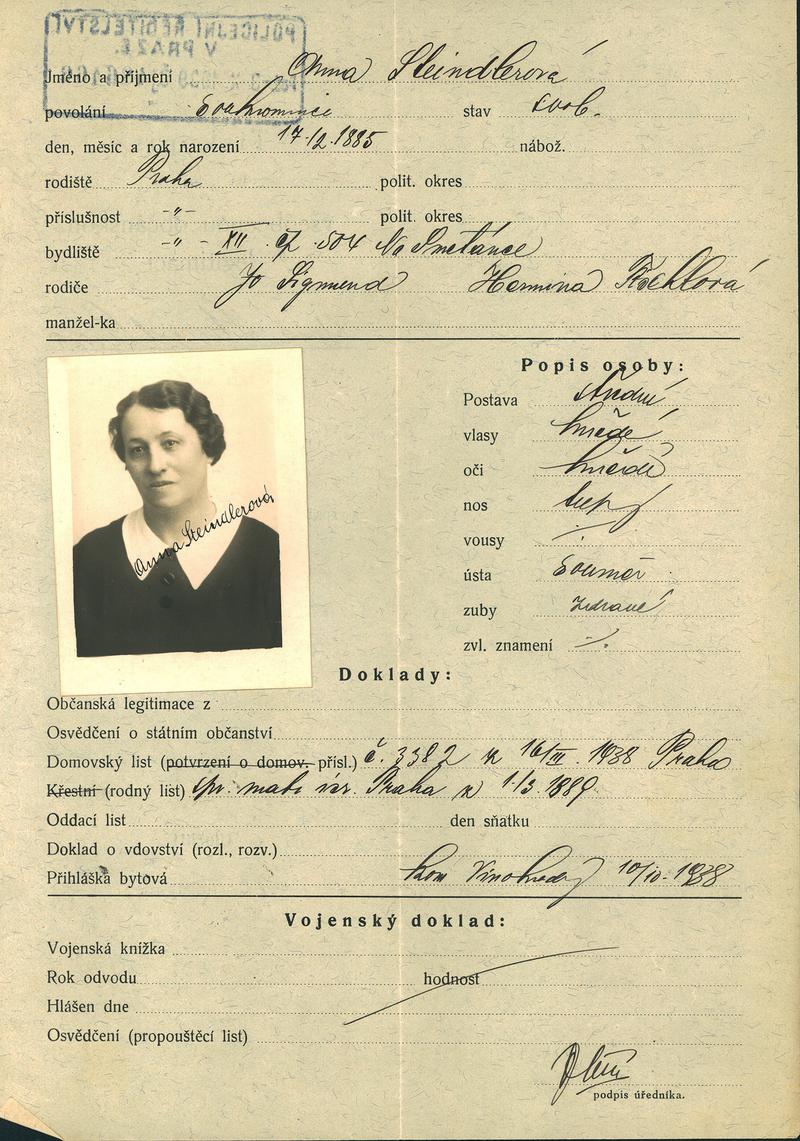 POLICEJNÍ ŘEDITELSTVÍ
V PRAZE
Jméno a příjmení Anna Steindlerová
povolání Soukromnice stav svob.
den, měsíc a rok narození 17.12.1885 nábož.
rodiště Praha polit. okres
příslušnost -"- polit. okres
bydliště -"- XII čp. 504 Na Smetánce
rodiče Sigmund Hermina
manžel-ka
Anna Steindlerová
Popis osoby:
Postava střední
vlasy hnědé
oči hnědé
nos tupý
vousy
ústa souměr.
zuby zdravé
zvl. znamení
Doklady:
Občanská legitimace z
Osvědčení o státním občanství
Domovský list (potvrzení o domov. přísl.) č. 3382 z 16/III. 1938 Praha
Křestní (rodný list) žid. Praha z 1./3. 1889.
Oddací list den sňatku
Doklad o vdovství (rozl., rozv.)
Přihláška bytová kom Vinohrady 1938
Vojenský doklad:
Vojenská knížka
Rok odvodu hodnost
Hlášen dne
Osvědčení (propouštěcí list)
podpis úředníka.